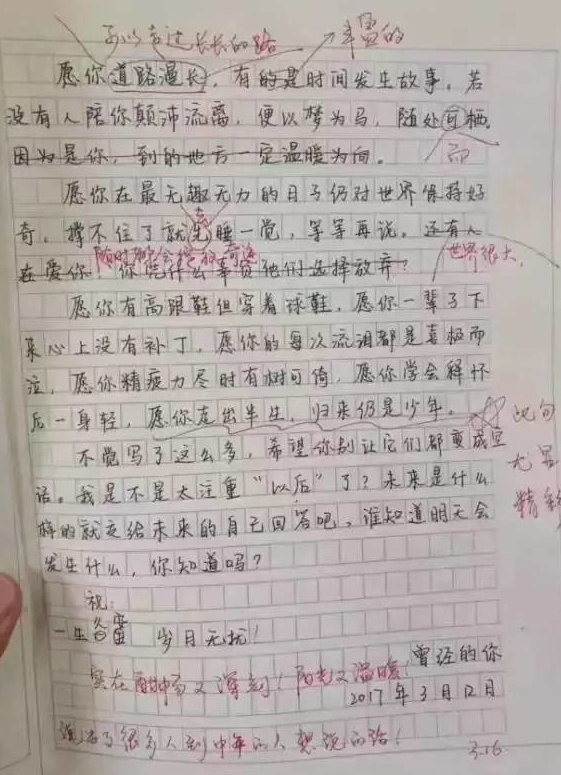 可以走过长长的路
丰盈的
愿你道路漫长，有的是时间发生故事。若
没有人陪你颠沛流离，便以梦为马，随处可栖。
而
因为是你，到的地方一定温暖为向。
愿你在最无趣无力的日子仍对世界保持好
奇。撑不住了就先睡一觉，等等再说。还有人
去
随时都会绽放奇迹
世界很大，
在爱你，你凭什么辜负他们选择放弃？
愿你有高跟鞋但穿着球鞋，愿你一辈子下
来心上没有补丁。愿你的每次流泪都是喜极而
泣，愿你精疲力尽时有树可倚，愿你学会释怀
后一身轻，愿你走出半生，归来仍是少年。
此句
尤显
精彩
不觉写了这么多，希望你别让它们都变成空
话。我是不是太注重“以后”了？未来是什么
样的就交给未来的自己回答吧，谁知道明天会
发生什么，你知道吗？
祝：
一生 岁月无扰！
曾经的你
实在酣畅又深刻！阳光又温暖！
2017年3月12日
说出了很多人到中年的人想说的话！
3.16